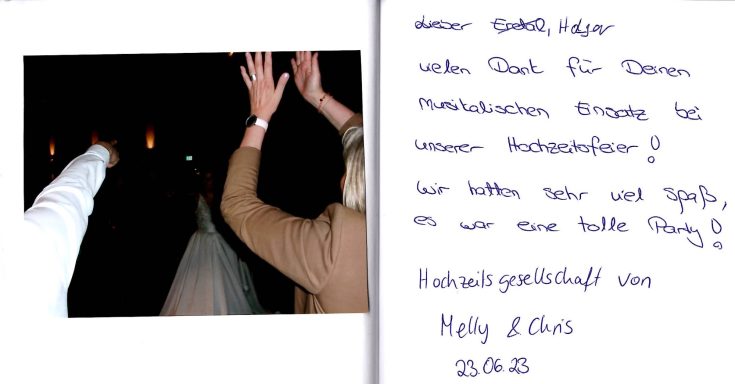 Lieber Holger
vielen Dank für Deinen
Musikalischen Einsatz bei
unserer Hochzeitsfeier!
Wir hatten sehr viel Spaß,
es war eine tolle Party!
Hochzeitsgesellschaft von
Melly & Chris
23.06.23